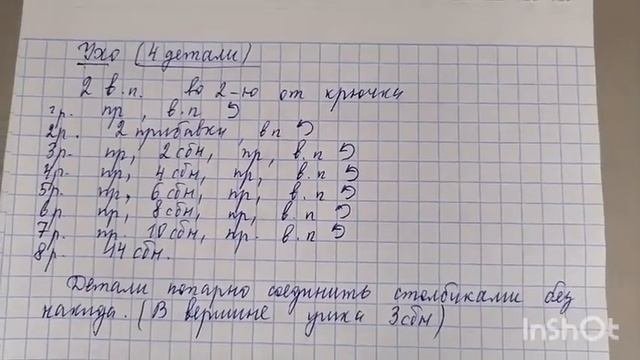 Ухо (4 детали)
2 в.п. во 2-ю от крючка
1р. пр, в.п
2р. 2 прибавки, вп
3р. пр, 2сбн, пр, в.п
4р. пр, 4 сбн, пр, в.п
5р. пр, 6 сбн, пр, в.п
6р пр, 8сбн, пр, в.п
7р. пр. 10 сбн, пр. в.п
8р. 14 сбн.
Детали попарно соединить столбиками без
накида. (В вершине ушка 3сбн)
InShOt